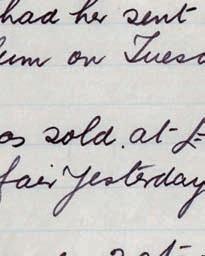 had her sent
um on Tuesd
os sold. at £
fair Yesterday